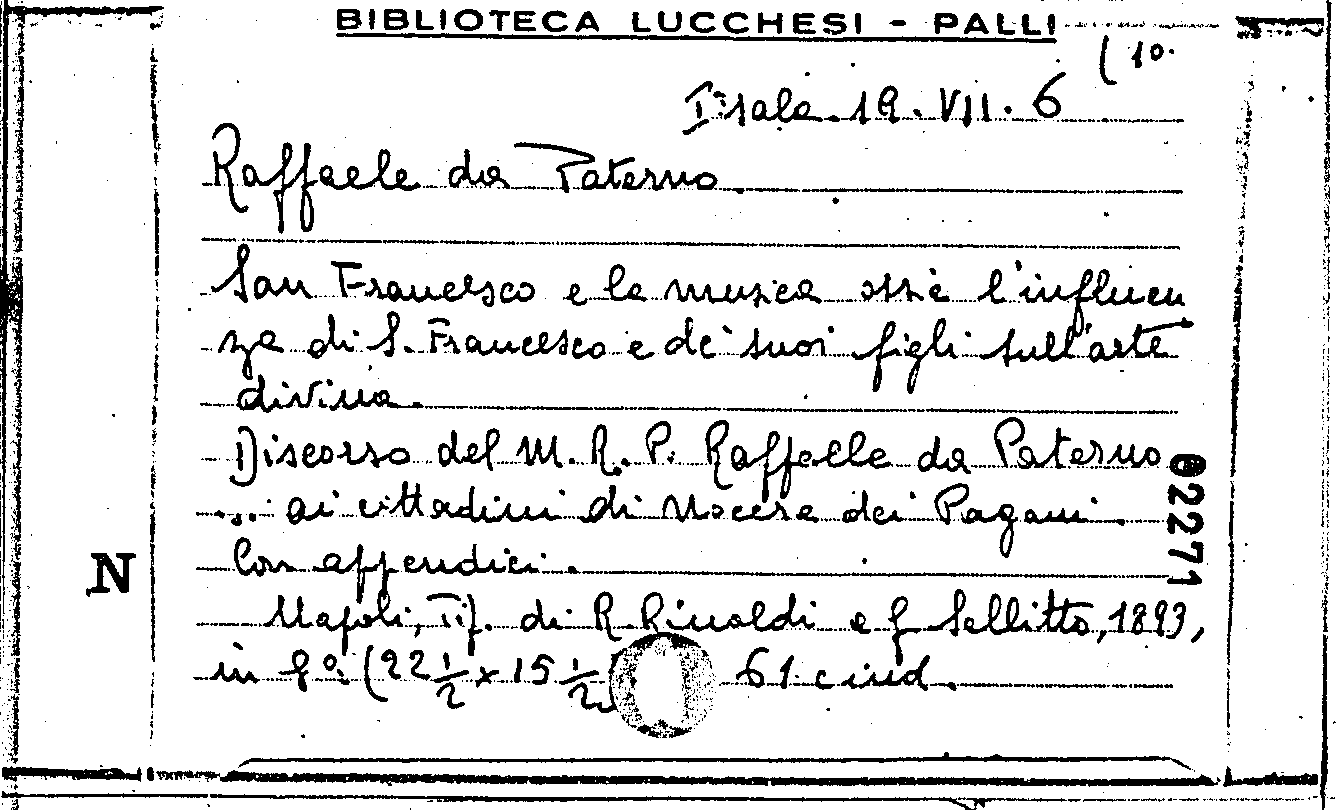 BIBLIOTECA LUCCHESI - PALLI
(10.
I sala. 19. VII. 6
Raffaele da Paterno.
San Francesco e la musica ossia l'influen
za di S. Francesco e de' suoi figli sull'arte
divina.
Discorso del M. R. P. Raffaele da Paterno
... ai cittadini di Nocera dei Pagani.
Con appendici.
Napoli, Tip. di R. Rinaldi e G. Sellitto, 1893,
in 8º. (22 ½ x 15 ½ 61 c ind.
02271
N